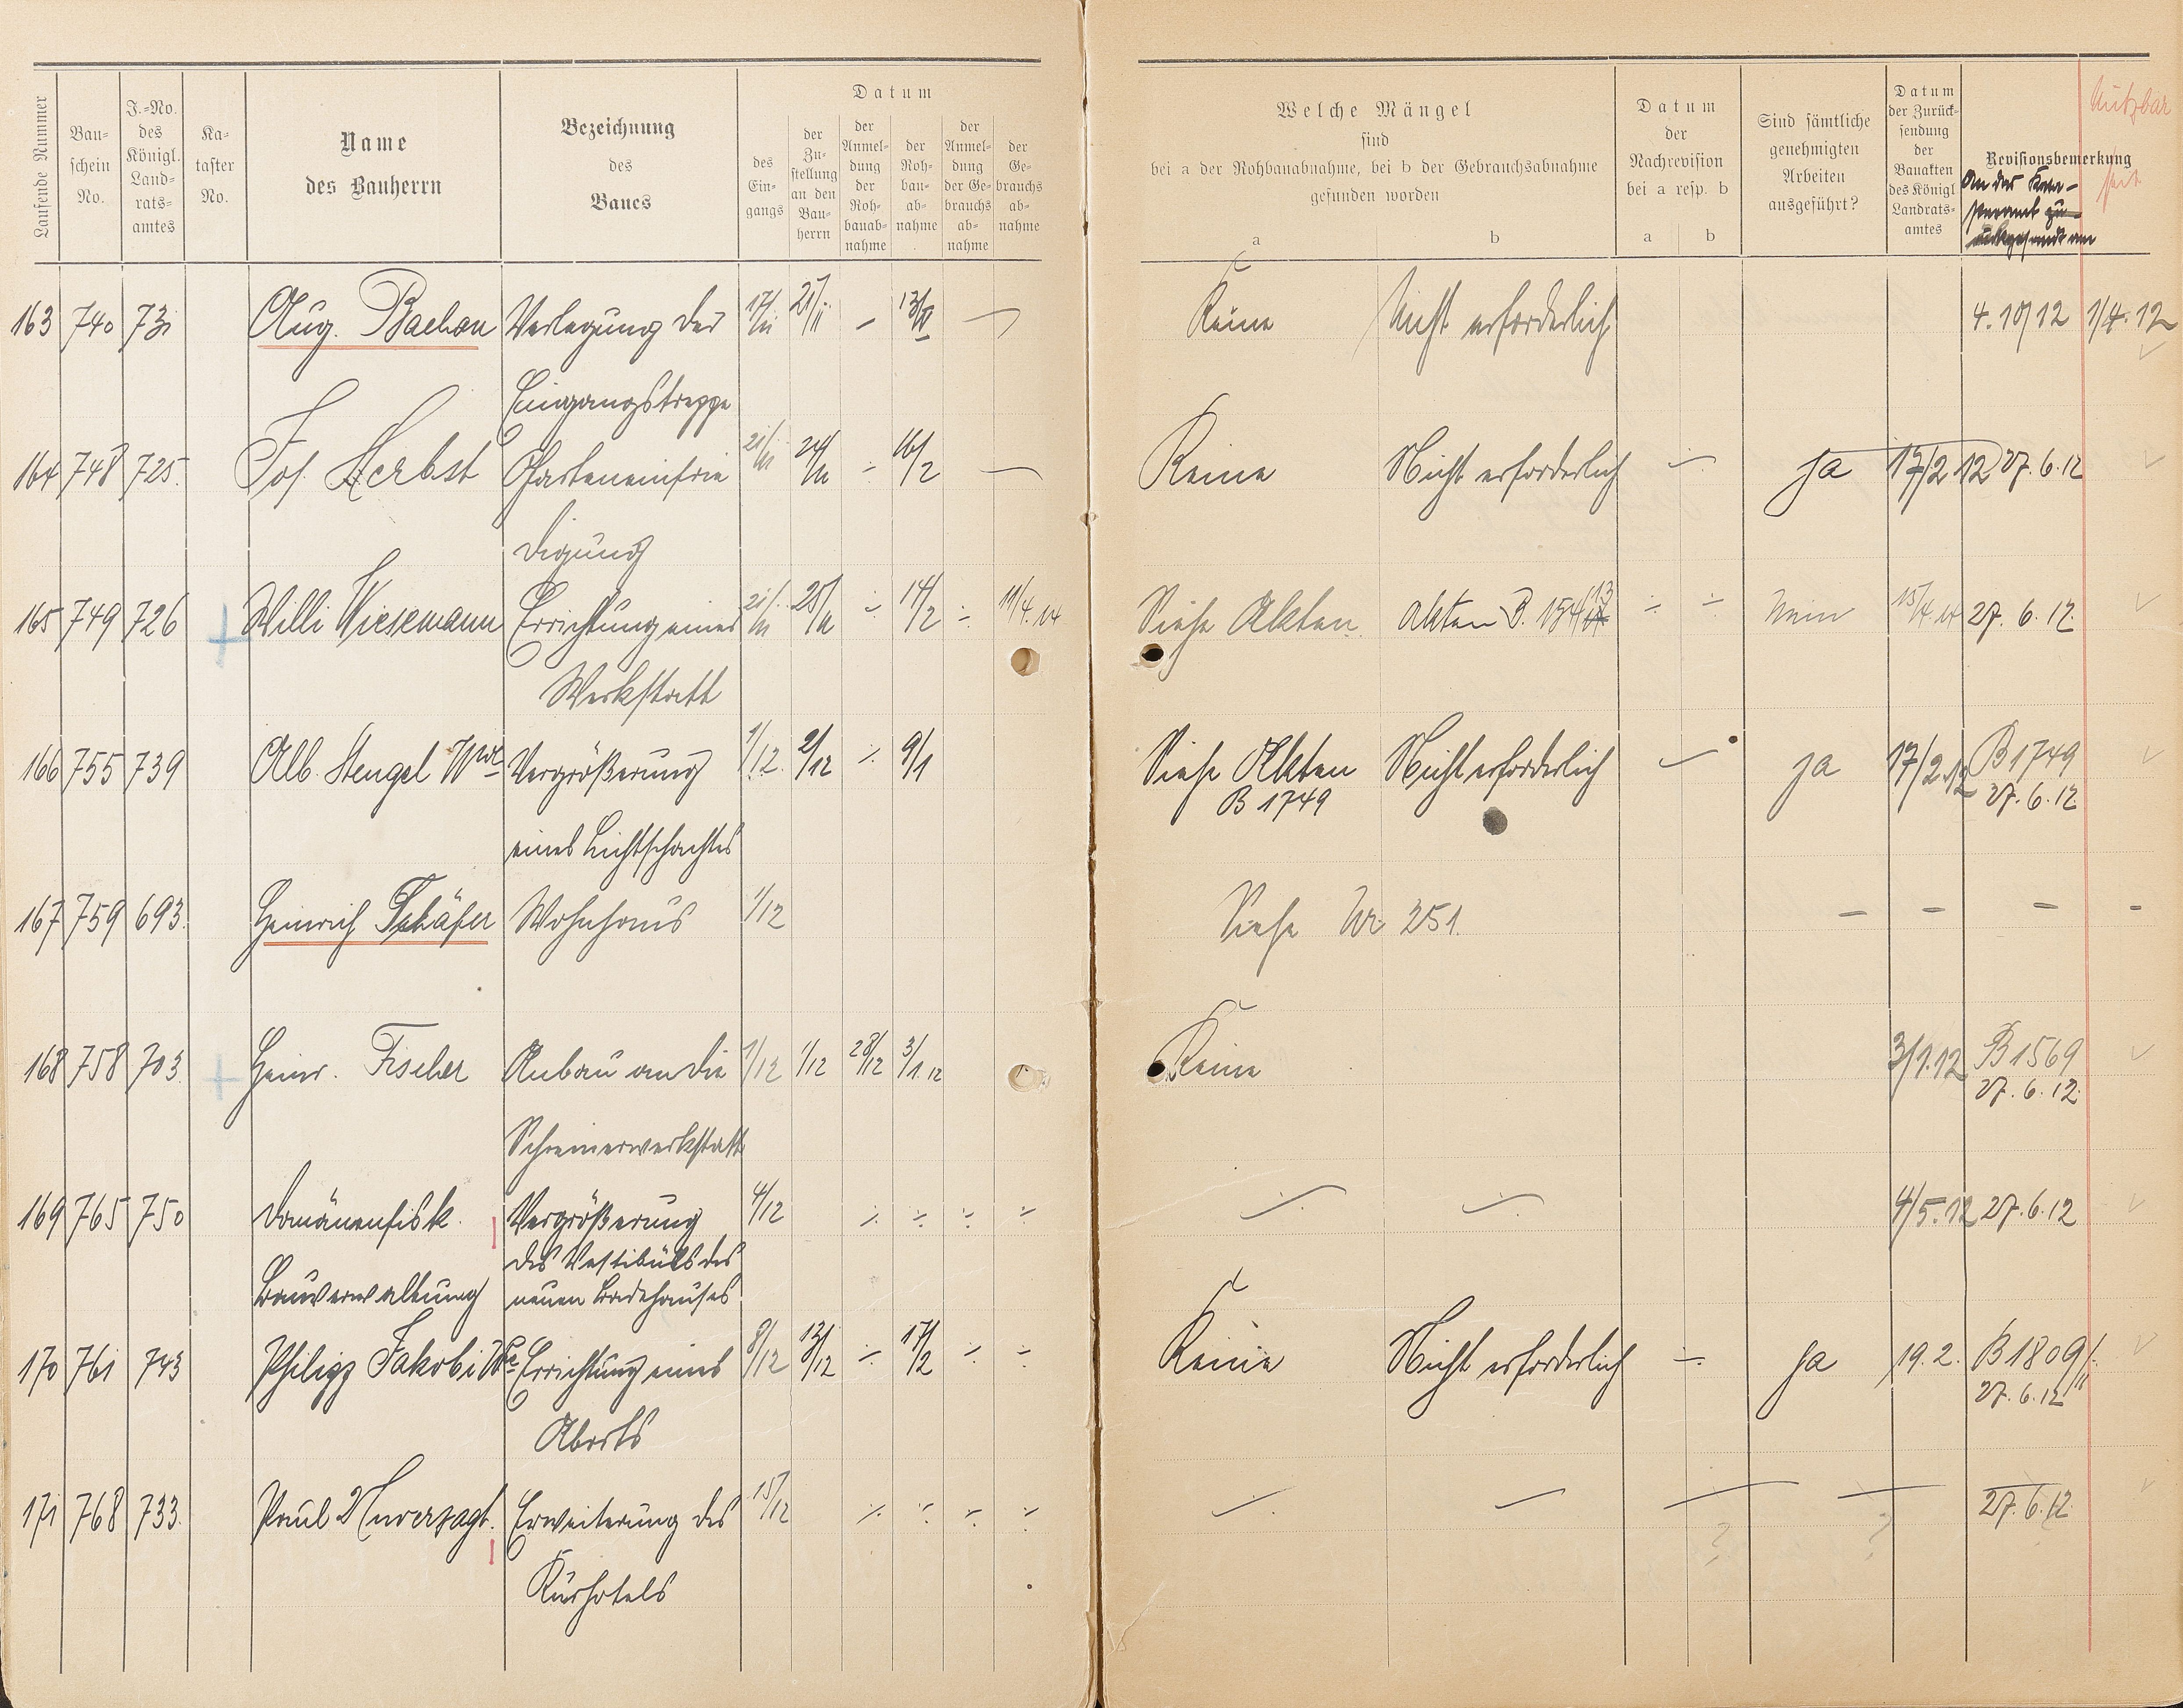 Laufende Nummer
Bau-
schein
No.
J.-No.
des
Königl.
Land-
rats-
amtes
Ka-
taster
No.
Name
des Bauherrn
Bezeichnung
des
Baues
Datum
des
Ein-
gangs
der
Zu-
stellung
an den
Bau-
herrn
der
Anmel-
dung
der
Roh-
bauab-
nahme
der
Roh-
bau-
ab-
nahme
der
Anmel-
dung
der Ge-
brauchs
ab-
nahme
der
Ge-
brauchs
ab-
nahme
Welche Mängel
sind
bei a der Rohbauabnahme, bei b der Gebrauchsabnahme
gefunden worden
a b
Datum
der
Nachrevision
bei a resp. b
a b
Sind sämtliche
genehmigten
Arbeiten
ausgeführt?
Datum
der Zurück-
sendung
der
Bauakten
des Königl.
Landrats-
amtes
Revisionsbemerkung
An das Kata-
steramt zu-
rückgesandt am
Nutzbar
seit
163 740 731 Aug. Bachon Verlegung der 17/11 21/11 – 13/ – Keine Nicht erforderlich 4. 10/12 1/4. 12
Eingangstreppe
164 748 725. Jos. Herbst Garteneinfrie 21/11 24/11 ÷ 16/2 – Keine Nicht erforderlich ÷ ja 17/2 12 27. 6. 12
digung
165 749 726 Willi Wiesemann Errichtung einer 21/11 25/11 ÷ 14/2 ÷ 11/4. 14 Siehe Akten. Akten B. 154/13 ÷ ÷ Nein 15/4. 14 27. 6. 12.
Werkstatt
166 755 739 Alb. Stengel Wwe Vergrößerung 1/12. 2/12 ÷ 9/1 Siehe Akten Nicht erforderlich – ja 17/2. 12 B 1749
B 1749 27. 6. 12
eines Lichtschachtes
167 759 693. Heinrich Schäfer Wohnhaus 1/12 Siehe Nr. 251. – – – –
168 758 703. Heinr. Fischer Anbau an die 1/12 1/12 28/12 3/1. 12 Keine 3/1. 12 B 1569
27. 6. 12.
Schreinerwerkstatt
169 765 750 Domänenfisk. Vergrößerung 4/12 ÷ ÷ ÷ ÷ ÷ ÷ 4/5. 12 27. 6. 12
des Vestibüls des
Bauverwaltung neuen Badehauses
170 761 743 Philipp Jakobi We Errichtung eines 8/12 13/12 ÷ 17/2 ÷ ÷ Keine Nicht erforderlich ÷ ja 19. 2. B 1809/11
27. 6. 12
Aborts
171 768 733. Paul Unverzagt. Erweiterung des 15/12 ÷ ÷ ÷ ÷ ÷ – – – 27. 6. 12.
? ?
Kurhotels